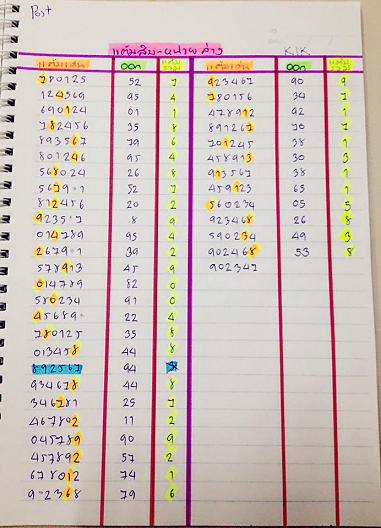 Post
แต้มสิบ-หน่วย ล่าง KIK
แต้มเด่น ออก แต้มรวม แต้มเด่น ออก แต้มรวม
780125 52 7 923467 90 9
124569 95 4 780156 34 7
690124 01 1 478912 92 1
782456 35 8 891267 70 7
893567 79 6 701245 38 1
801246 95 4 458913 30 3
568024 26 8 913567 38 1
52 7 459123 65 1
812456 20 2 560234 05 5
9 923468 26 8
014789 95 4 590234 49 3
39 2 902468 53 8
578913 45 9 902347
014789 82 0
580234 91 0
22 4
780125 35 8
013458 44 8
892567 94
934678 44 8
346781 25 7
467802 11 2
045789 90 9
457892 57 2
678012 74 1
79 6